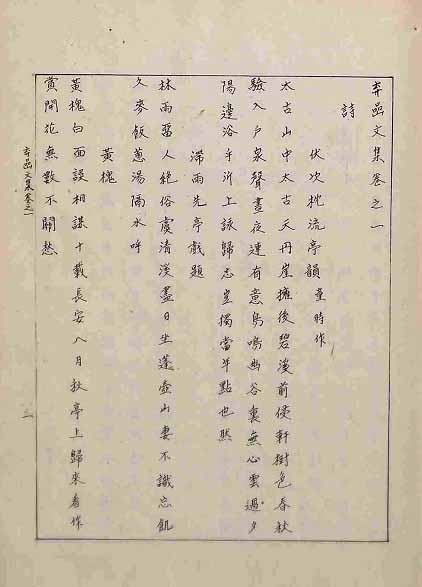 弃𠙖文集卷之一
詩
伏次桃流亭韻 童時作
太古山中太古天丹崖擁後碧溪前侵軒樹色春秋
驗入戶泉聲晝夜連有意鳥鳴幽谷裏無心雲過夕
陽邊浴乎沂上詠歸志豈獨當年點也然
滯雨先亭戲題
林雨留人絶俗虞清溪盡日坐蓬壺山妻不識忘飢
久麥飯蔥湯隔水呼
黃槐
黃槐白面設相謀十載長安八月秋亭上歸來看作
賞閒花無數不關愁
弃𠙖文集卷之一